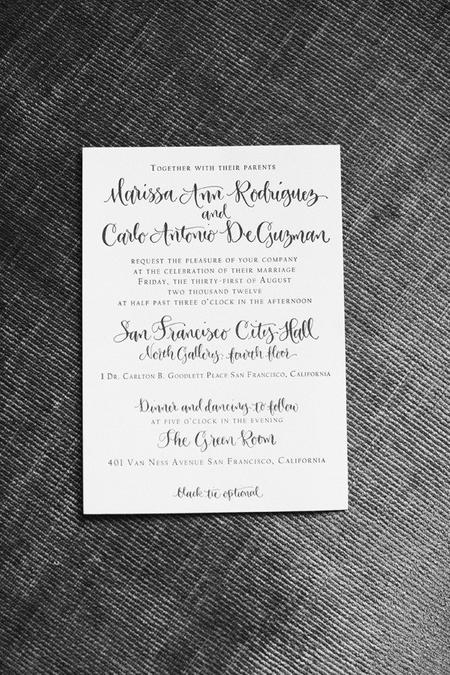 Together with their parents
Marissa Ann Rodriguez
and
Carlo Antonio De Guzman
request the pleasure of your company
at the celebration of their marriage
Friday, the thirty-first of August
two thousand twelve
at half past three o'clock in the afternoon
San Francisco City Hall
North Gallery, fourth floor
1 Dr. Carlton B. Goodlett Place San Francisco, California
Dinner and dancing to follow
at five o'clock in the evening
The Green Room
401 Van Ness Avenue San Francisco, California
black tie optional